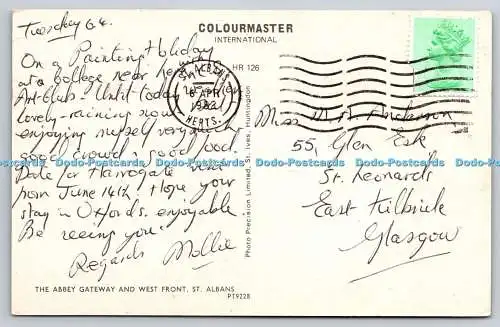 Tuesday 6.4.
On a Painting Holiday
at a College near here with
Art-Club. Until today weather
lovely - raining now
enjoying myself very much
good crowd good food.
Date for Harrogate
from June 14th Hope your
stay in Oxfords. enjoyable.
Be seeing you.
Regards Mollie
THE ABBEY GATEWAY AND WEST FRONT, ST. ALBANS
PT9228
COLOURMASTER
INTERNATIONAL
HR 126
ST. ALBANS
6 APR
HERTS.
Photo Precision Limited, St. Ives, Huntingdon
Miss M. Anderson
55, Glen Esk
St. Leonards
East Kilbride
Glasgow
Dodo-Postcards Dodo-Postcards Dodo-Postcards Dodo-Postcards